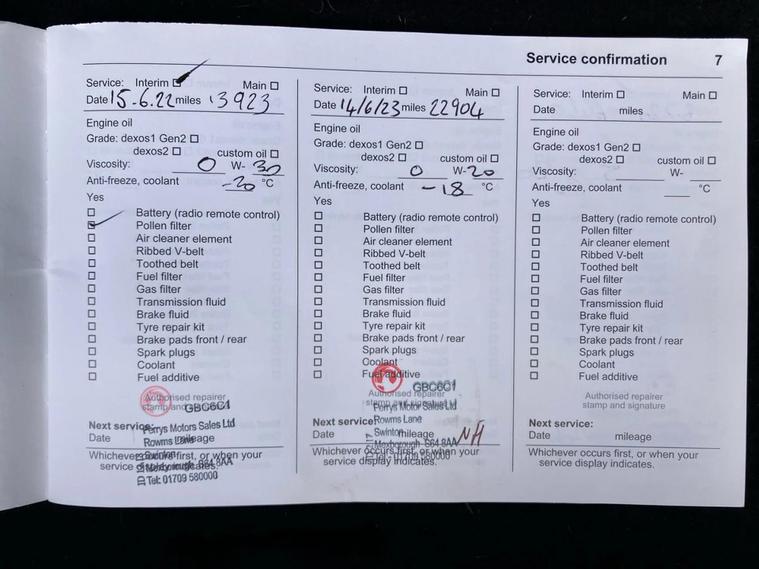 Service confirmation 7
Service: Interim Main
Date 15.6.22 miles 13923
Engine oil
Grade: dexos1 Gen2
dexos2 custom oil
Viscosity: 0 W- 30
Anti-freeze, coolant -20 °C
Yes
Battery (radio remote control)
Pollen filter
Air cleaner element
Ribbed V-belt
Toothed belt
Fuel filter
Gas filter
Transmission fluid
Brake fluid
Tyre repair kit
Brake pads front / rear
Spark plugs
Coolant
Fuel additive
Authorised repairer
stamp and GBC6C1
Perrys Motors Sales Ltd
Next service:
Rowns Lane
Date mileage
Swinton
Whichever occurs first, or when your
service display indicates.
Mexborough S64 8AA
Tel: 01709 580000
Service: Interim Main
Date 14/6/23 miles 22904
Engine oil
Grade: dexos1 Gen2
dexos2 custom oil
Viscosity: 0 W- 20
Anti-freeze, coolant -18 °C
Yes
Battery (radio remote control)
Pollen filter
Air cleaner element
Ribbed V-belt
Toothed belt
Fuel filter
Gas filter
Transmission fluid
Brake fluid
Tyre repair kit
Brake pads front / rear
Spark plugs
Coolant
Fuel additive
GBC6C1
Authorised repairer
stamp and signature
Perrys Motor Sales Ltd
Next service:
Rowns Lane
Swinton
Date mileage NH
Mexborough S64 8AA
Whichever occurs first, or when your
Tel: 01709 580000
service display indicates.
Service: Interim Main
Date miles
Engine oil
Grade: dexos1 Gen2
dexos2 custom oil
Viscosity: W-
Anti-freeze, coolant °C
Yes
Battery (radio remote control)
Pollen filter
Air cleaner element
Ribbed V-belt
Toothed belt
Fuel filter
Gas filter
Transmission fluid
Brake fluid
Tyre repair kit
Brake pads front / rear
Spark plugs
Coolant
Fuel additive
Authorised repairer
stamp and signature
Next service:
Date mileage
Whichever occurs first, or when your
service display indicates.